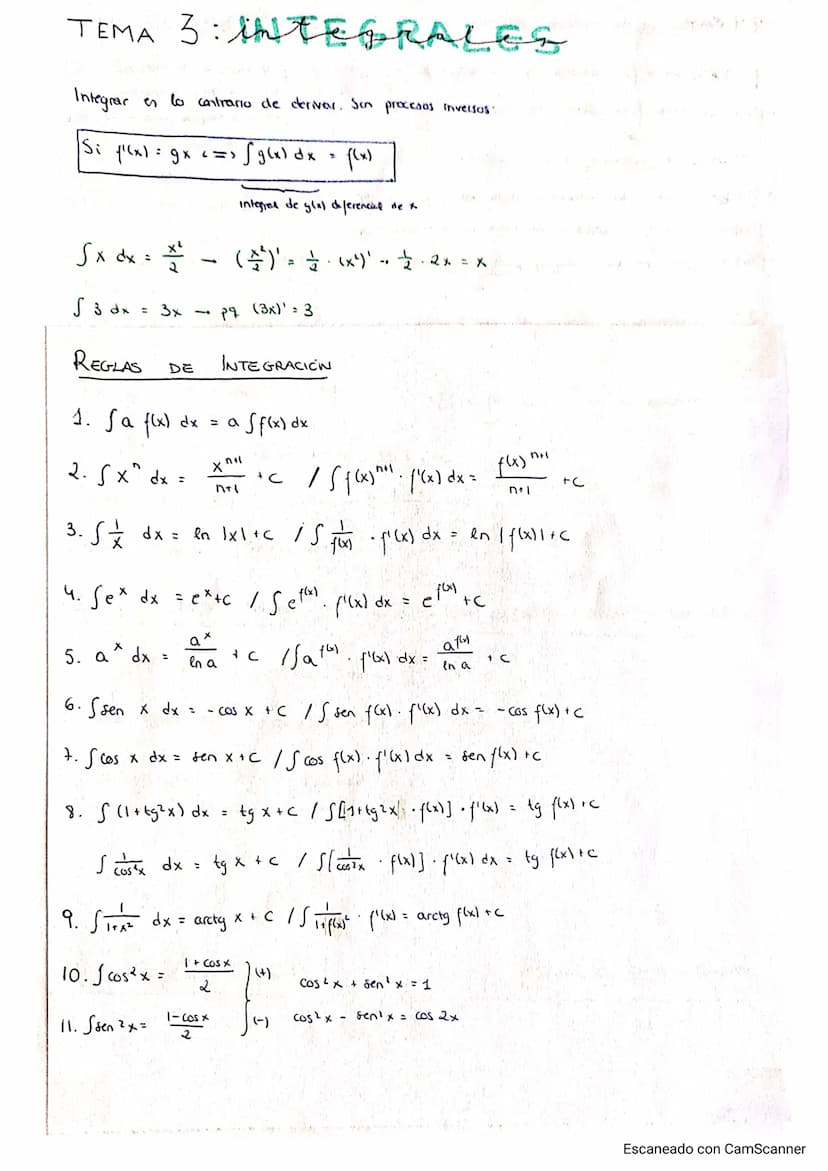 TEMA 3: INTEGRALES
Integrar es lo contrario de derivar. Son procesos inversos:
Si f'(x) = gx <=> ∫g(x) dx = f(x)
integral de g(x) diferencial de x
∫x dx = x²/2 → (x²/2)' = 1/2 · (x²)' → 1/2 · 2x = x
∫3 dx = 3x → pq (3x)' = 3
REGLAS DE INTEGRACIÓN
1. ∫a f(x) dx = a ∫f(x) dx
2. ∫xⁿ dx = xⁿ⁺¹/n+1 + C / ∫f(x)ⁿ⁺¹ · f'(x) dx = f(x)ⁿ⁺¹/n+1 + C
3. ∫1/x dx = ln |x| + C / ∫1/f(x) · f'(x) dx = ln |f(x)| + C
4. ∫eˣ dx = eˣ + C / ∫e^f(x) · f'(x) dx = e^f(x) + C
5. aˣ dx = aˣ/ln a + C / ∫a^f(x) · f'(x) dx = a^f(x)/ln a + C
6. ∫sen x dx = -cos x + C / ∫sen f(x) · f'(x) dx = -cos f(x) + C
7. ∫cos x dx = sen x + C / ∫cos f(x) · f'(x) dx = sen f(x) + C
8. ∫(1+tg²x) dx = tg x + C / ∫[1+tg²x · f(x)] · f'(x) = tg f(x) + C
∫1/cos²x dx = tg x + C / ∫[1/cos²x · f(x)] · f'(x) dx = tg f(x) + C
9. ∫1/1+x² dx = arctg x + C / ∫1/1+f(x)² · f'(x) = arctg f(x) + C
10. ∫cos²x = 1+cos x/2 (+) cos²x + sen²x = 1
11. ∫sen²x = 1-cos x/2 (-) cos²x - sen²x = cos 2x
Escaneado con CamScanner